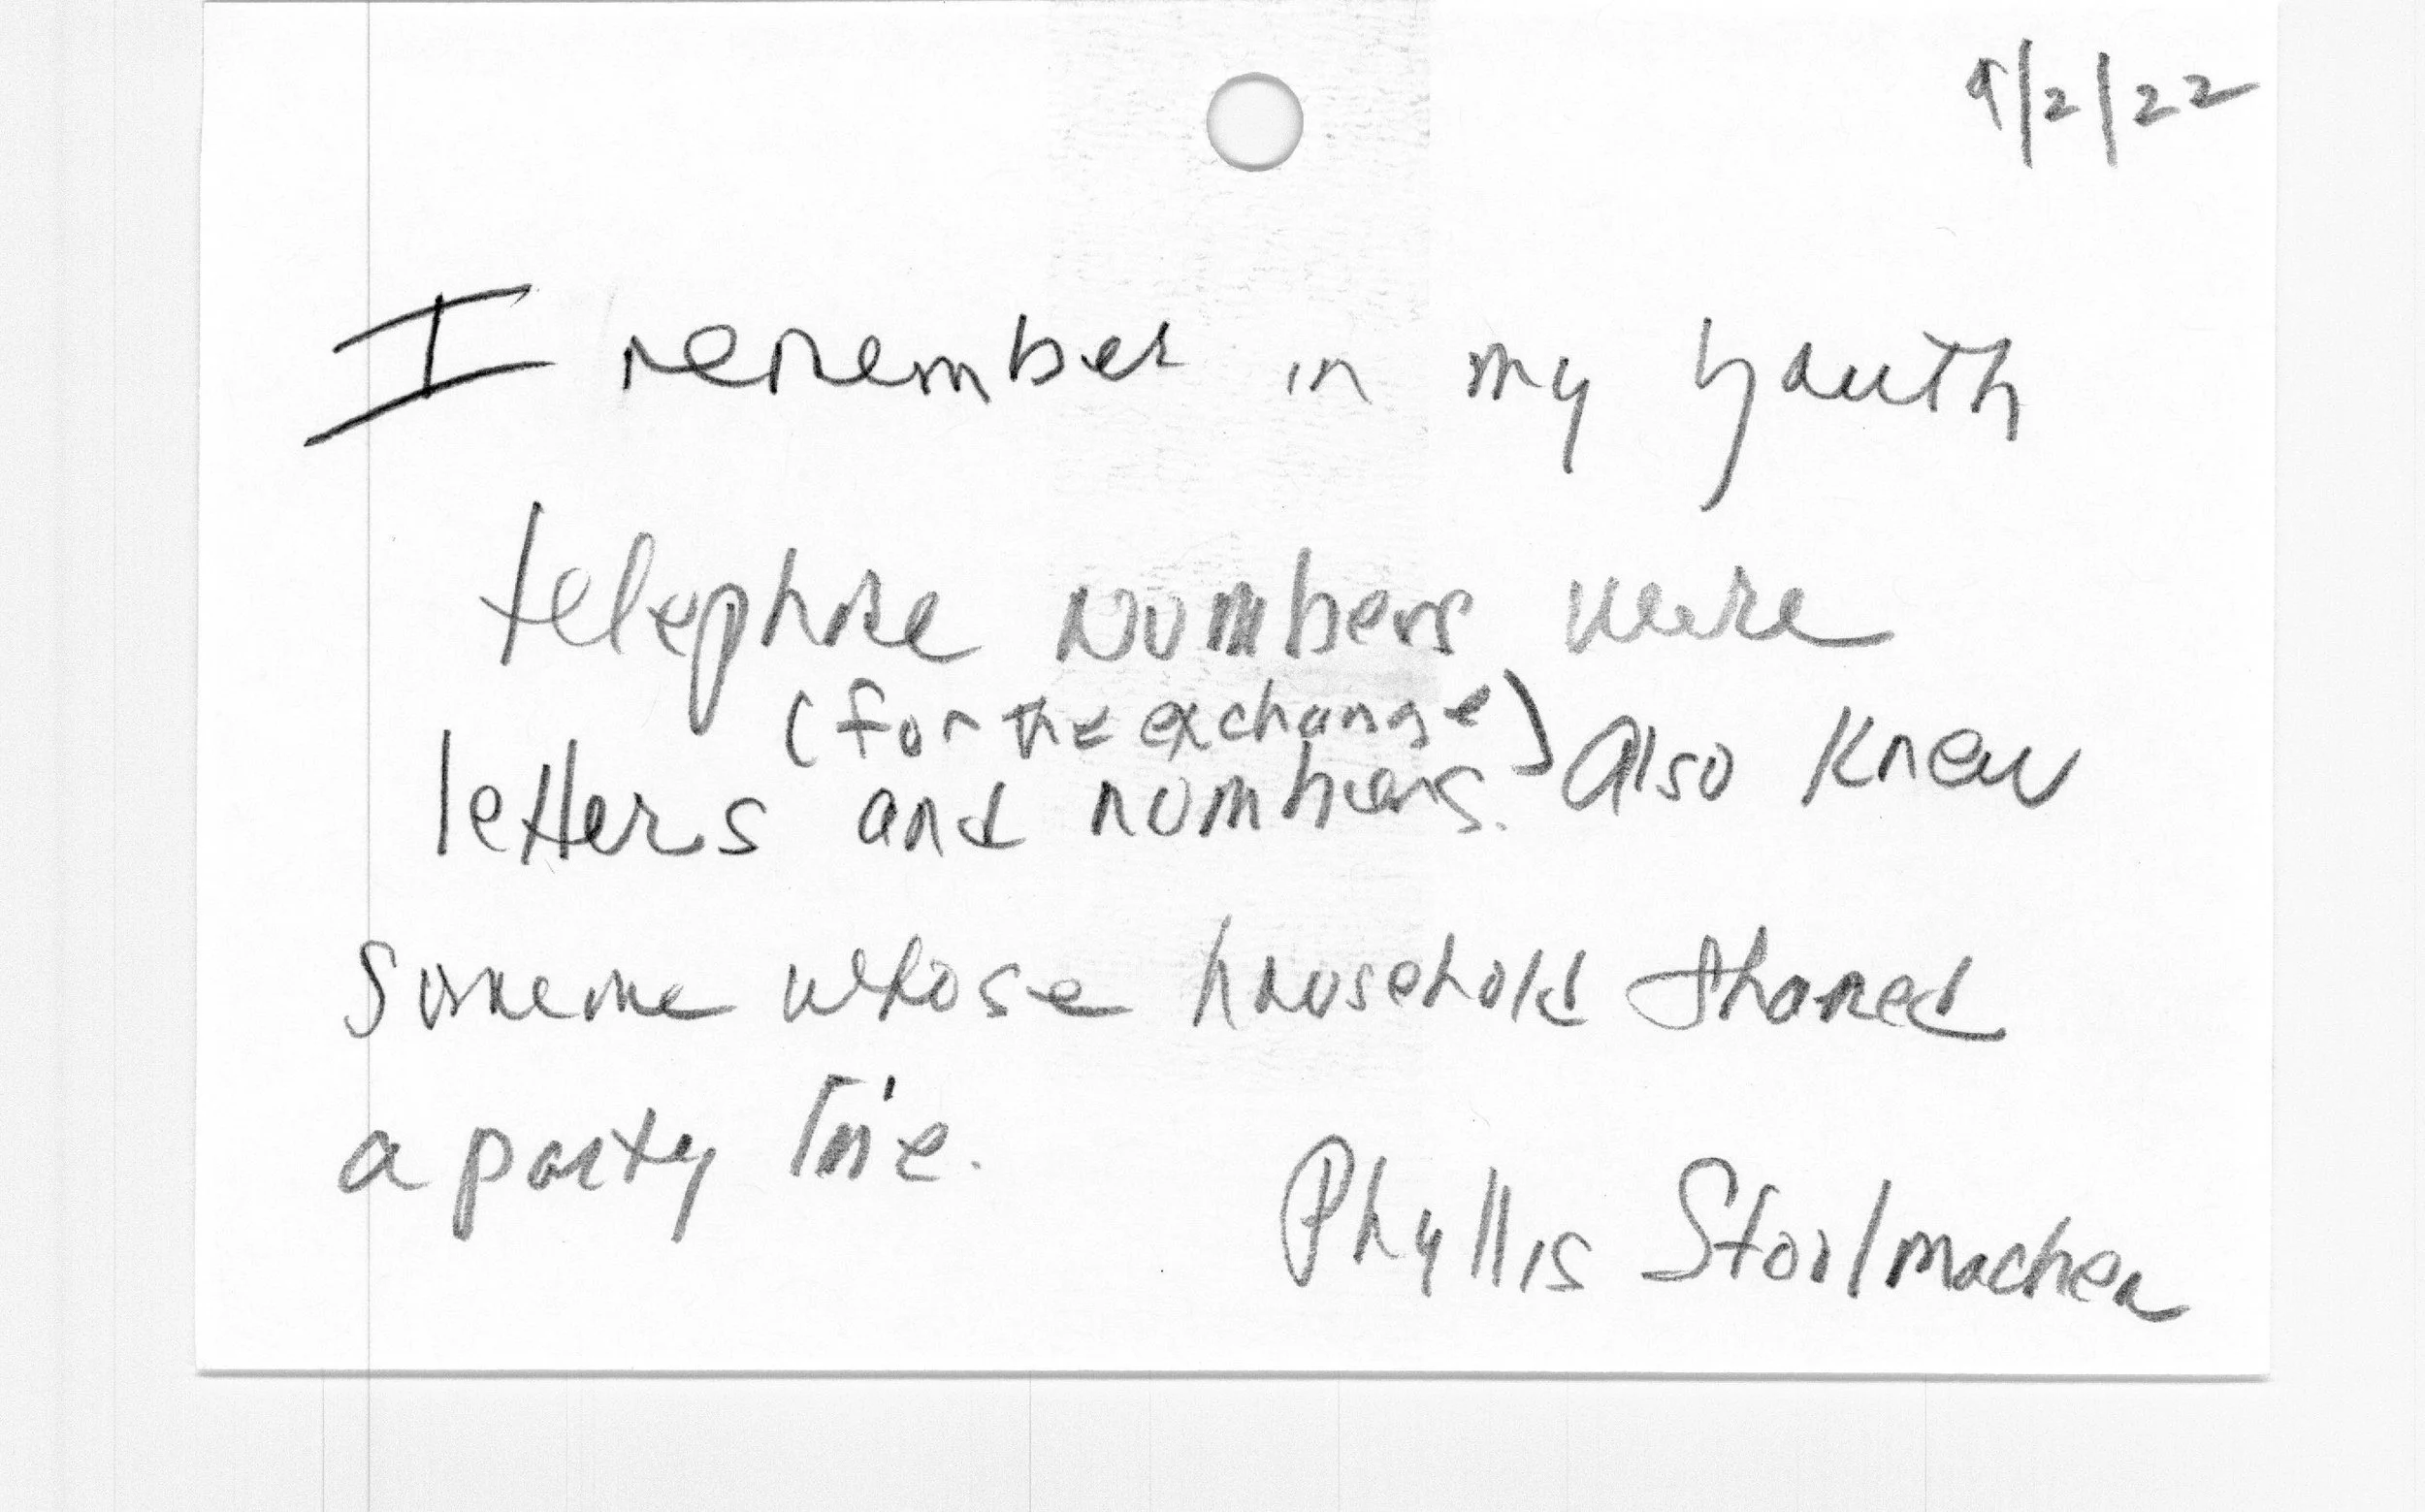 9/2/22
I remember in my youth
telephone numbers were
(for the exchange)
letters and numbers. Also knew
someone whose household shared
a party line.
Phyllis Stoolmacher